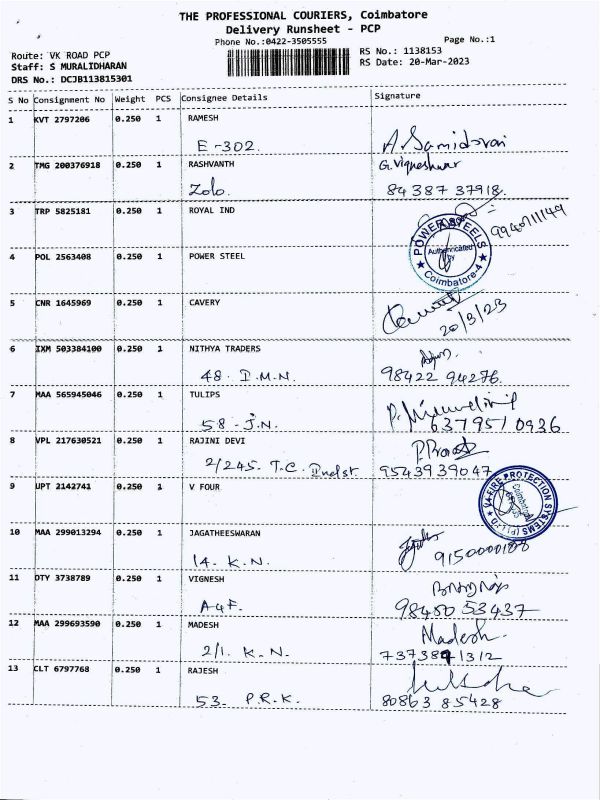 THE PROFESSIONAL COURIERS, Coimbatore
Delivery Runsheet - PCP
Phone No.:0422-3505555
Page No.:1
Route: VK ROAD PCP
Staff: S MURALIDHARAN
DRS No.: DCJB113815301
RS No.: 1138153
RS Date: 20-Mar-2023
S No Consignment No Weight PCS Consignee Details Signature
1 KVT 2797206 0.250 1 RAMESH
E-302. A Samidorai
2 TMG 200376918 0.250 1 RASHVANTH G. Vigneshwar
Zolo. 84387 37918.
3 TRP 5825181 0.250 1 ROYAL IND
POWER STEELS
Authenticated
by
Coimbatore-4
4 POL 2563408 0.250 1 POWER STEEL
5 CNR 1645969 0.250 1 CAVERY
20/3/23
6 IXM 503384100 0.250 1 NITHYA TRADERS
48. I.M.N. 98422 94276.
7 MAA 565945046 0.250 1 TULIPS
58-J.N. 637951 0936
8 VPL 217630521 0.250 1 RAJINI DEVI
2/245. T.C. Indst. 9543939047
9 UPT 2142741 0.250 1 V FOUR
FIRE PROTECTION SYSTEMS (P) LTD
Coimbatore
10 MAA 299013294 0.250 1 JAGATHEESWARAN
14. K.N. 9150000188
11 DTY 3738789 0.250 1 VIGNESH
A4F. 98480 53437
12 MAA 299693590 0.250 1 MADESH Madesh.
2/1. K.N. 7373841312
13 CLT 6797768 0.250 1 RAJESH
53. P.R.K. 80863 85428